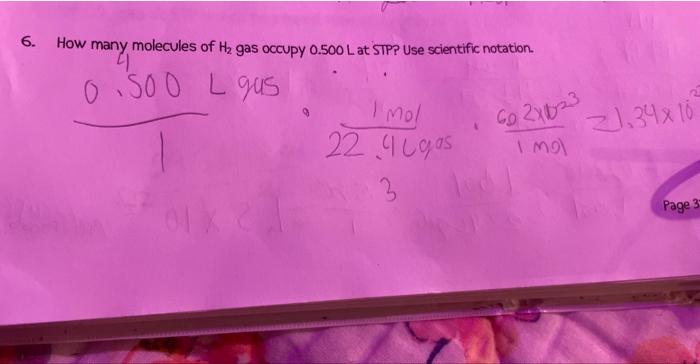 6. How many molecules of H₂ gas occupy 0.500 L at STP? Use scientific notation.
4
0.500 L gas
1
1 mol
22.4 L gas
3
6.02x10²³
1 mol
=1.34x10²
Page 3